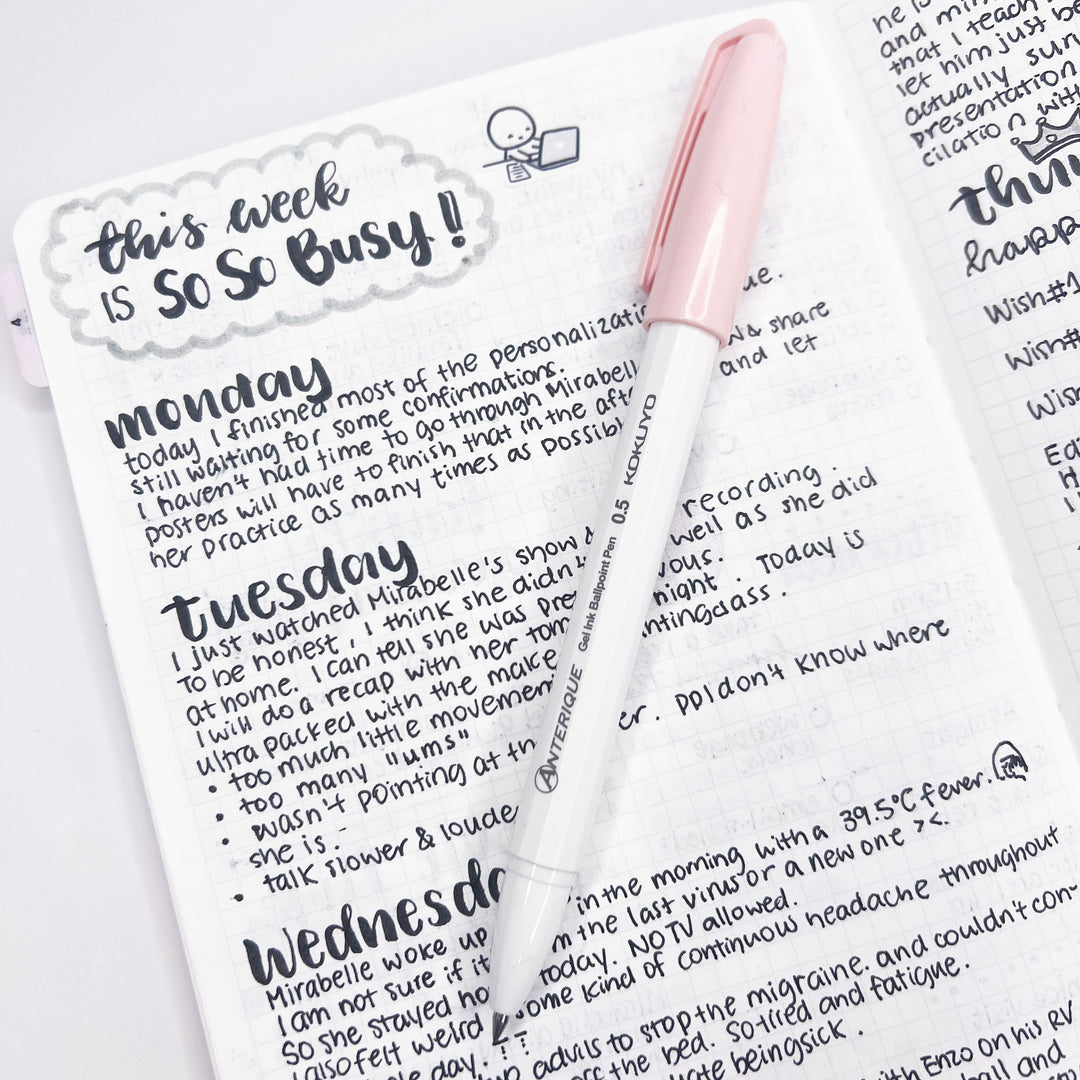 this week
IS SO SO BUSY!!
monday
today I finished most of the personalizatio ue.
still waiting for some confirmations.
I haven't had time to go through Mirabell W4 share
posters will have to finish that in the aft and let
her practice as many times as possibl
tuesday
I just watched Mirabelle's show recording.
TO be honest, I think she didn't well as she did
at home. I can tell she was pre vous.
I will do a recap with her tom night. Today is
ultra packed with the make intingclass.
• too much little movemen
• too many "ums"
• wasn't pointing at th er. PPI don't know where
she is.
• talk slower & loude
Wednesda
Mirabelle woke up in the morning with a 39.5°C fever.
I am not sure if it m the last virus or a new one ><.
So she stayed ho today. NO TV allowed.
I also felt weird some kind of continuous headache throughout
ole day. T_T
advils to stop the migraine. and couldn't con-
off the bed. So tired and fatigue.
hate being sick.
with Enzo on his RV
ball and
ANTERIQUE Gel Ink Ballpoint Pen 0.5 KOKUYO
4
he is
and mi
that I teach
let him just be
actually sur
presentation
cilation with
thu
happ
Wish#1
Wish#
Wis
Ed
H
I